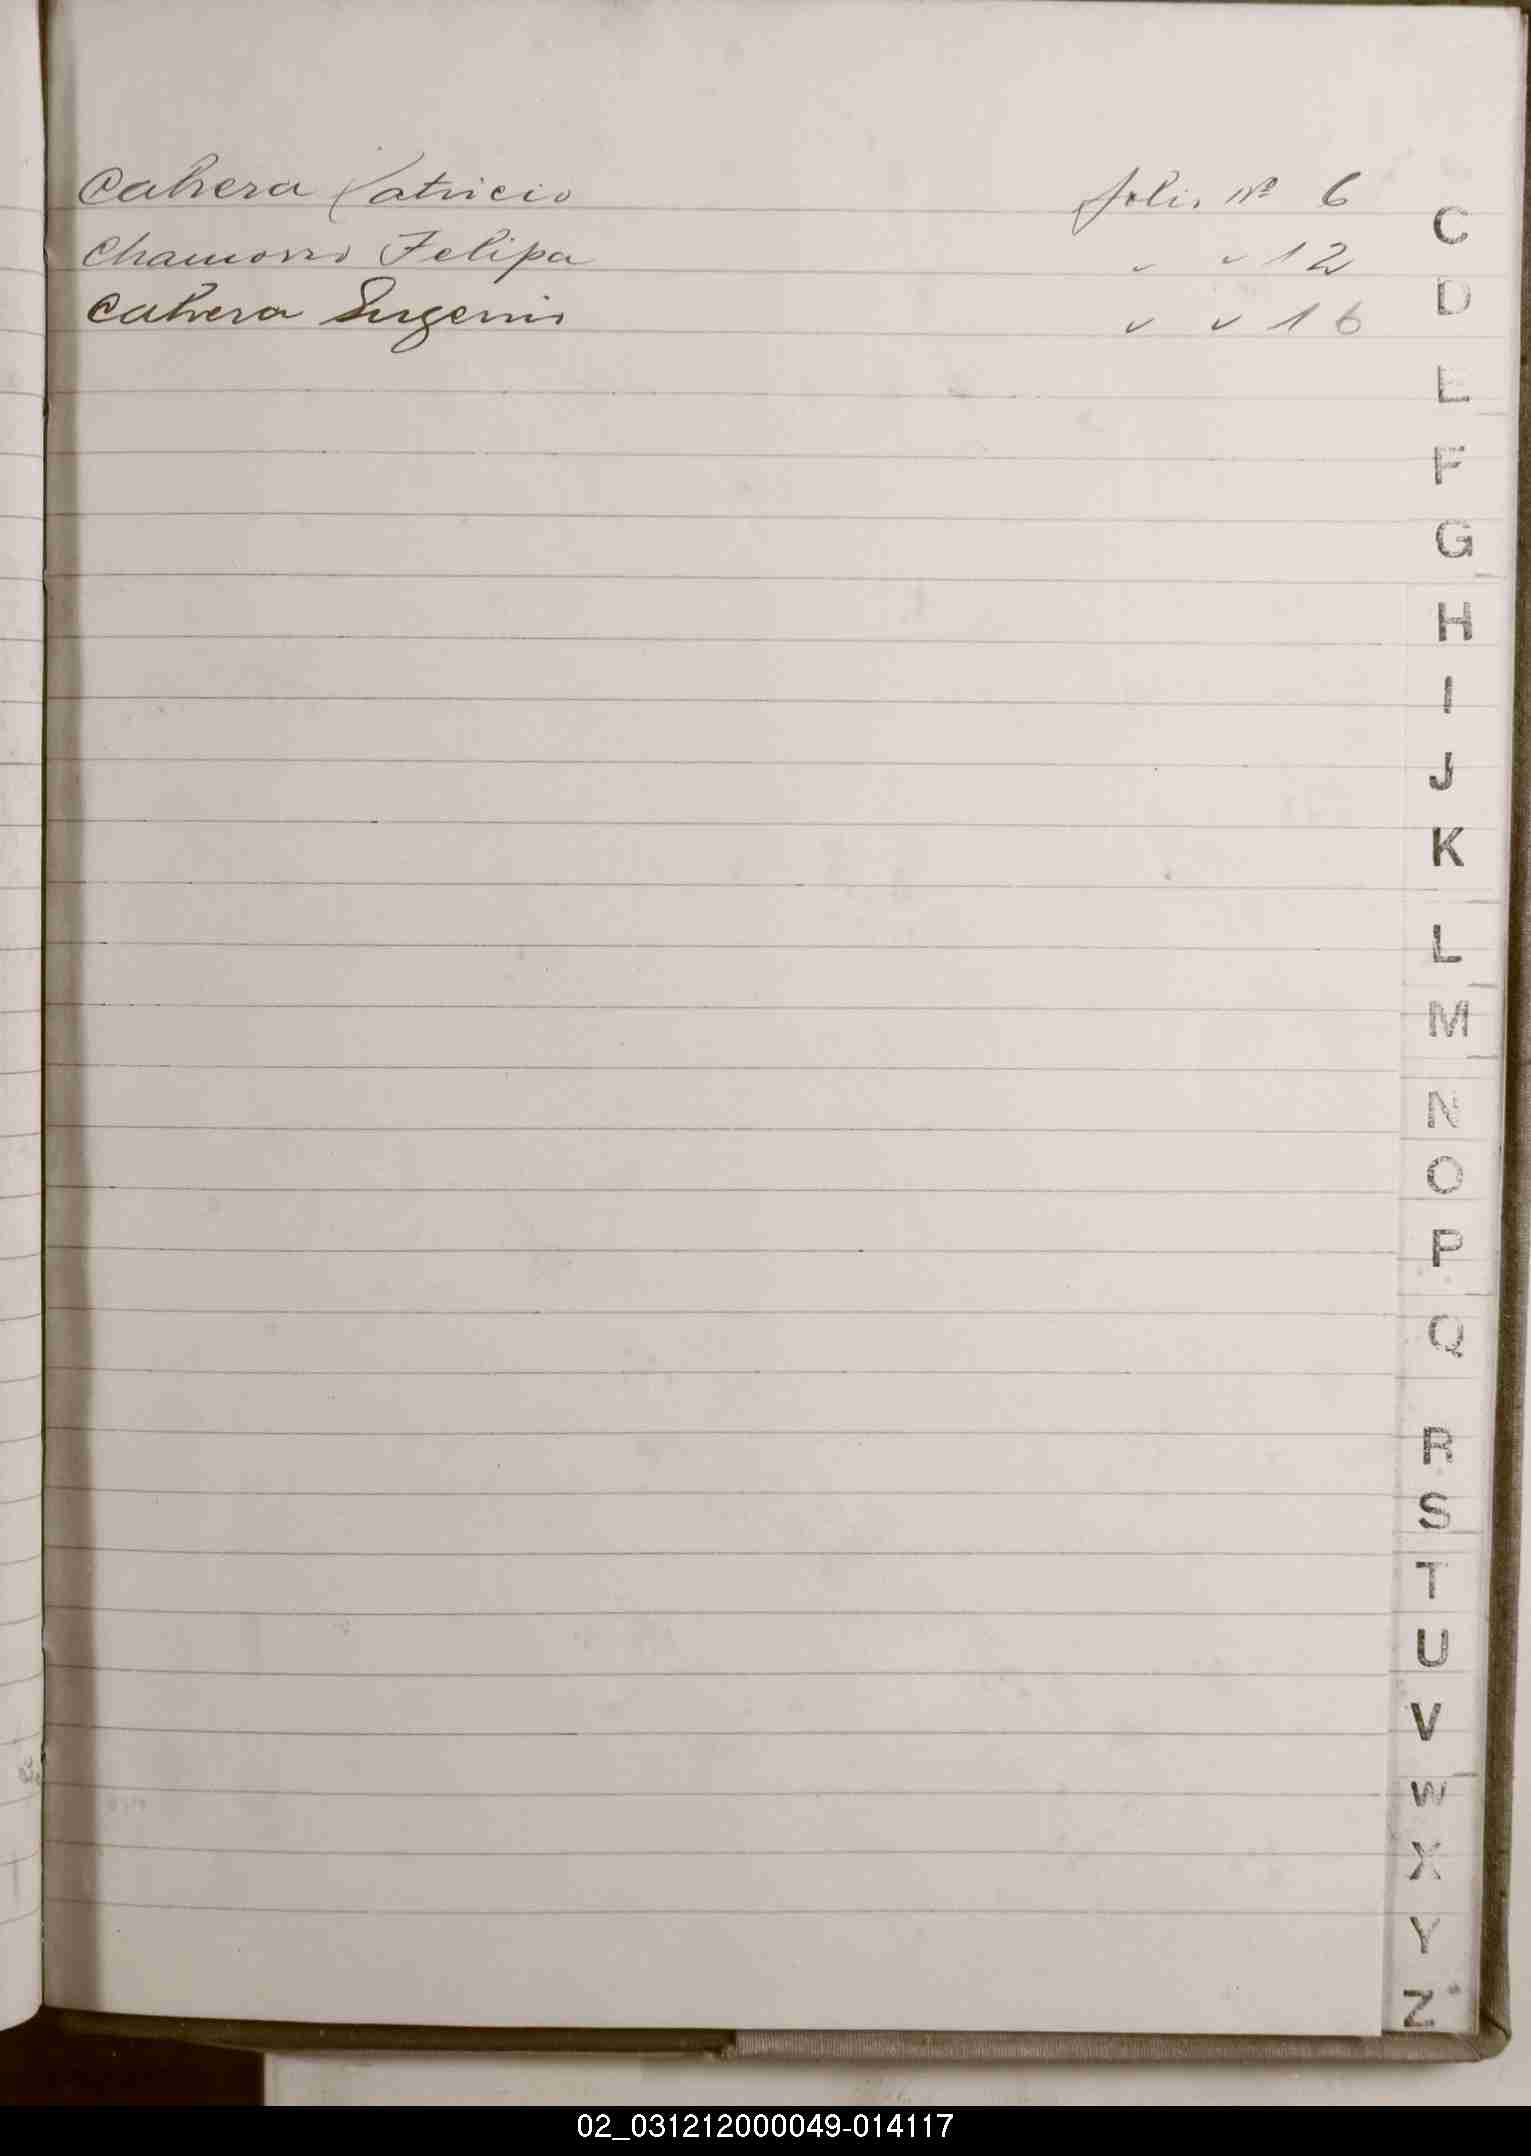 Cabrera Patricio folio Nº 6
Chamorro Felipa " " 12
Cabrera Eugenio " " 16
C
D
E
F
G
H
I
J
K
L
M
N
O
P
Q
R
S
T
U
V
W
X
Y
Z
02_031212000049-014117